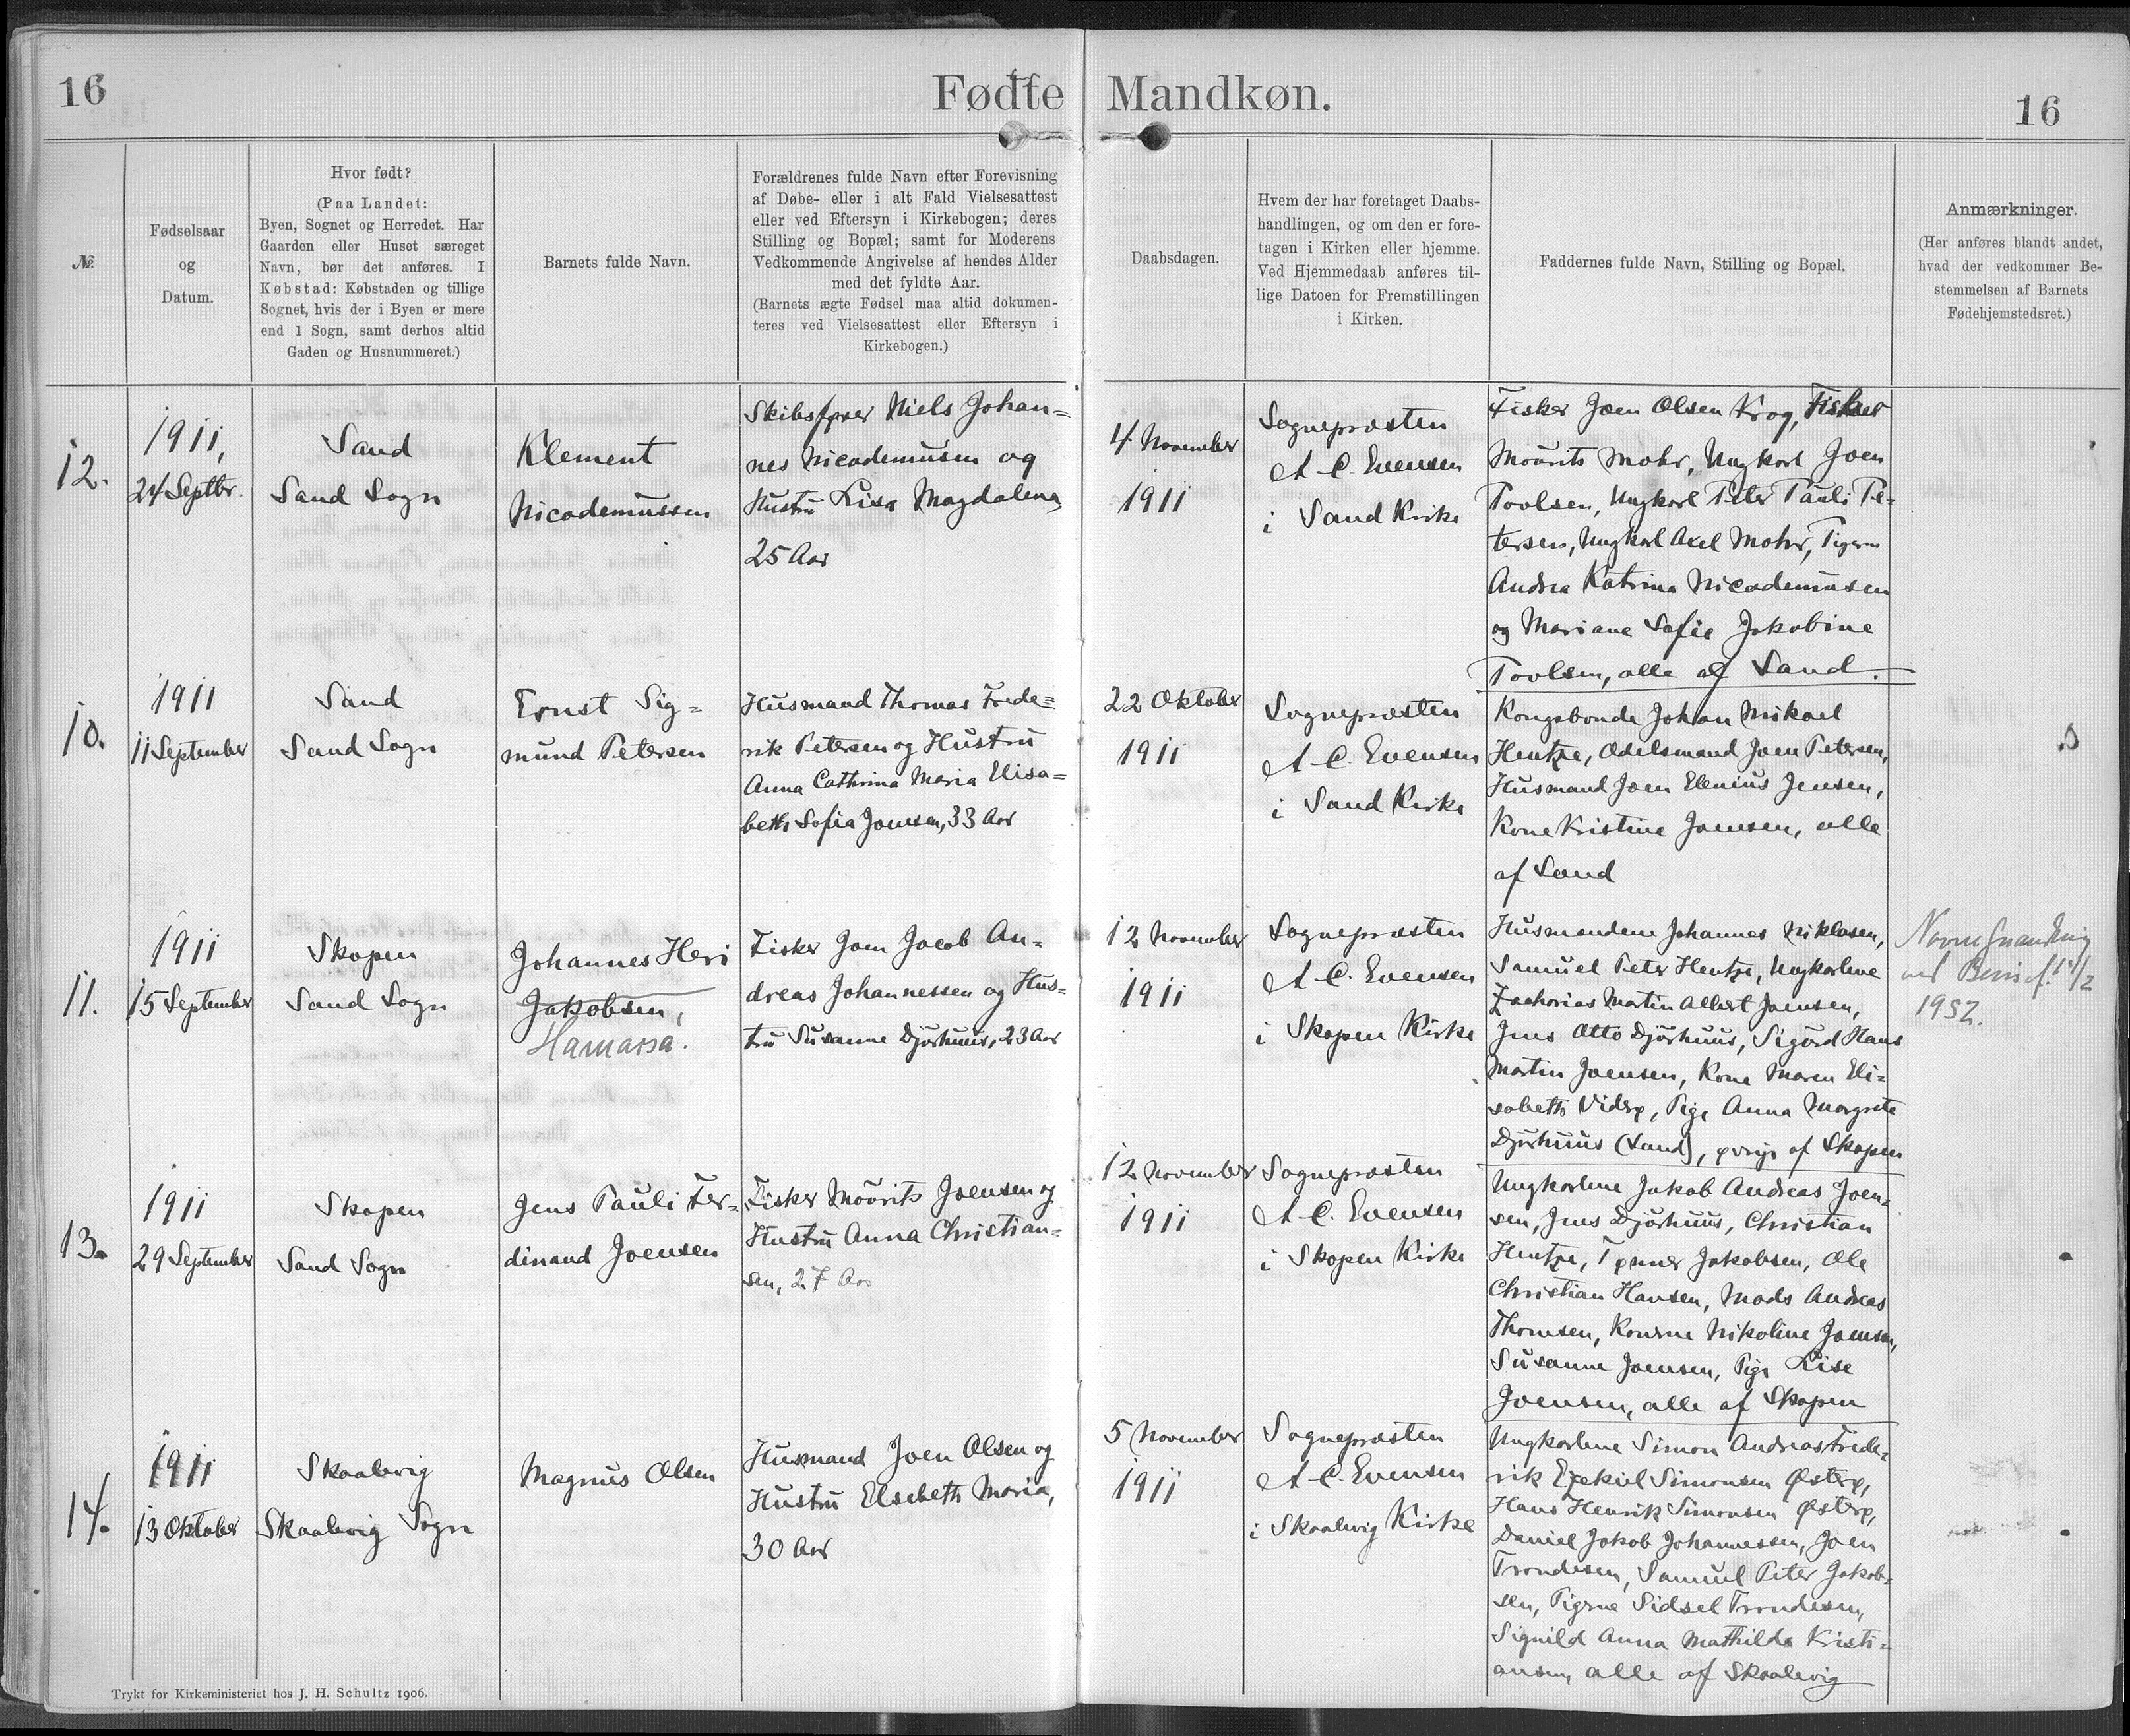 16
Fødte
Mandkøn.
16
№.
Fødselsaar
og
Datum.
Hvor født?
(Paa Landet:
Byen, Sognet og Herredet. Har
Gaarden eller Huset særeget
Navn, bør det anføres. I
Købstad: Købstaden og tillige
Sognet, hvis der i Byen er mere
end 1 Sogn, samt derhos altid
Gaden og Husnummeret.)
Barnets fulde Navn.
Forældrenes fulde Navn efter Forevisning
af Døbe- eller i alt Fald Vielsesattest
eller ved Eftersyn i Kirkebogen; deres
Stilling og Bopæl; samt for Moderens
Vedkommende Angivelse af hendes Alder
med det fyldte Aar.
(Barnets ægte Fødsel maa altid dokumen-
teres ved Vielsesattest eller Eftersyn i
Kirkebogen.)
Daabsdagen.
Hvem der har foretaget Daabs-
handlingen, og om den er fore-
tagen i Kirken eller hjemme.
Ved Hjemmedaab anføres til-
lige Datoen for Fremstillingen
i Kirken.
Faddernes fulde Navn, Stilling og Bopæl.
Anmærkninger.
(Her anføres blandt andet,
hvad der vedkommer Be-
stemmelsen af Barnets
Fødehjemstedsret.)
12.
1911,
24 Septbr.
Sand
Sand Sogn
Klement
Nicodemussen
Skibsfører Niels Johan=
nes Nicodemusen og
Hustru Lisa Magdalena,
25 Aar
4. November
1911
Sognepræsten
A. C. Evensen
i Sand Kirke
Fisker Joen Olsen Krog, Fisker
Mourits Mohr, Ungkarl Joen
Poulsen, Ungkarl Peter Pauli Pe-
tersen, Ungkarl Axel Mohr, Pigerne
Andrea Katrina Nicodemusen
og Mariane Sofie Jakobine
Poulsen, alle af Sand.
10.
1911
11 September
Sand
Sand Sogn
Ernst Sig=
mund Petersen
Husmand Thomas Frede=
rik Petersen og Hustru
Anna Cathrina Maria Elisa=
beth Sofia Joensen, 33 Aar
22 Oktober
1911
Sognepræsten
A. C. Evensen
i Sand Kirke
Kongsbonde Johan Mikael
Hentze, Odelsmand Joen Petersen,
Husmand Joen Elenius Jensen,
Kone Kristine Joensen, alle
af Sand
11.
1911
15 September
Skopen
Sand Sogn
Johannes Heri
Jakobsen,
Hamarsá.
Fisker Joen Jacob An=
dreas Johannessen og Hus=
tru Susanne Djurhuus, 23 Aar
12 November
1911
Sognepræsten
A. C. Evensen
i Skopen Kirke
Husmændene Johannes Niklasen,
Samuel Peter Hentze, Ungkarlene
Zacharias Martin Albert Joensen,
Jens Otto Djurhuus, Sigurd Hans
Martin Joensen, Kone Maren Eli=
sabeth Viderø, Pige Anna Margrete
Djurhuus (Sand), øvrige af Skopen
Navneforandring
ved
1952.
13.
1911
29 September
Skopen
Sand Sogn
Jens Pauli Fer=
dinand Joensen
Fisker Mourits Joensen og
Hustru Anna Christian=
sen, 27 Aar
12 November
1911
Sognepræsten
A. C. Evensen
i Skopen Kirke
Ungkarlene Jakob Andreas Joen=
sen, Jens Djurhuus, Christian
Hentze, Tønner Jakobsen, Ole
Christian Hansen, Mads Andreas
Thomsen, Konerne Nikoline Joensen,
Susanne Joensen, Pige Lise
Joensen, alle af Skopen
14.
1911
13 Oktober
Skaalevig
Skaalevig Sogn
Magnus Olsen
Husmand Joen Olsen og
Hustru Elsebeth Maria,
30 Aar
5 November
1911
Sognepræsten
A. C. Evensen
i Skaalevig Kirke
Ungkarlene Simon Andreas Frede=
rik Ezekiel Simonsen Østerø,
Hans Henrik Simonsen Østerø,
Daniel Jakob Johannessen, Joen
Trondesen, Samuel Peter Jakob=
sen, Pigerne Sidsel Trondesen,
Signild Anna Mathilde Kristi=
ansen, alle af Skaalevig
Trykt for Kirkeministeriet hos J. H. Schultz 1906.